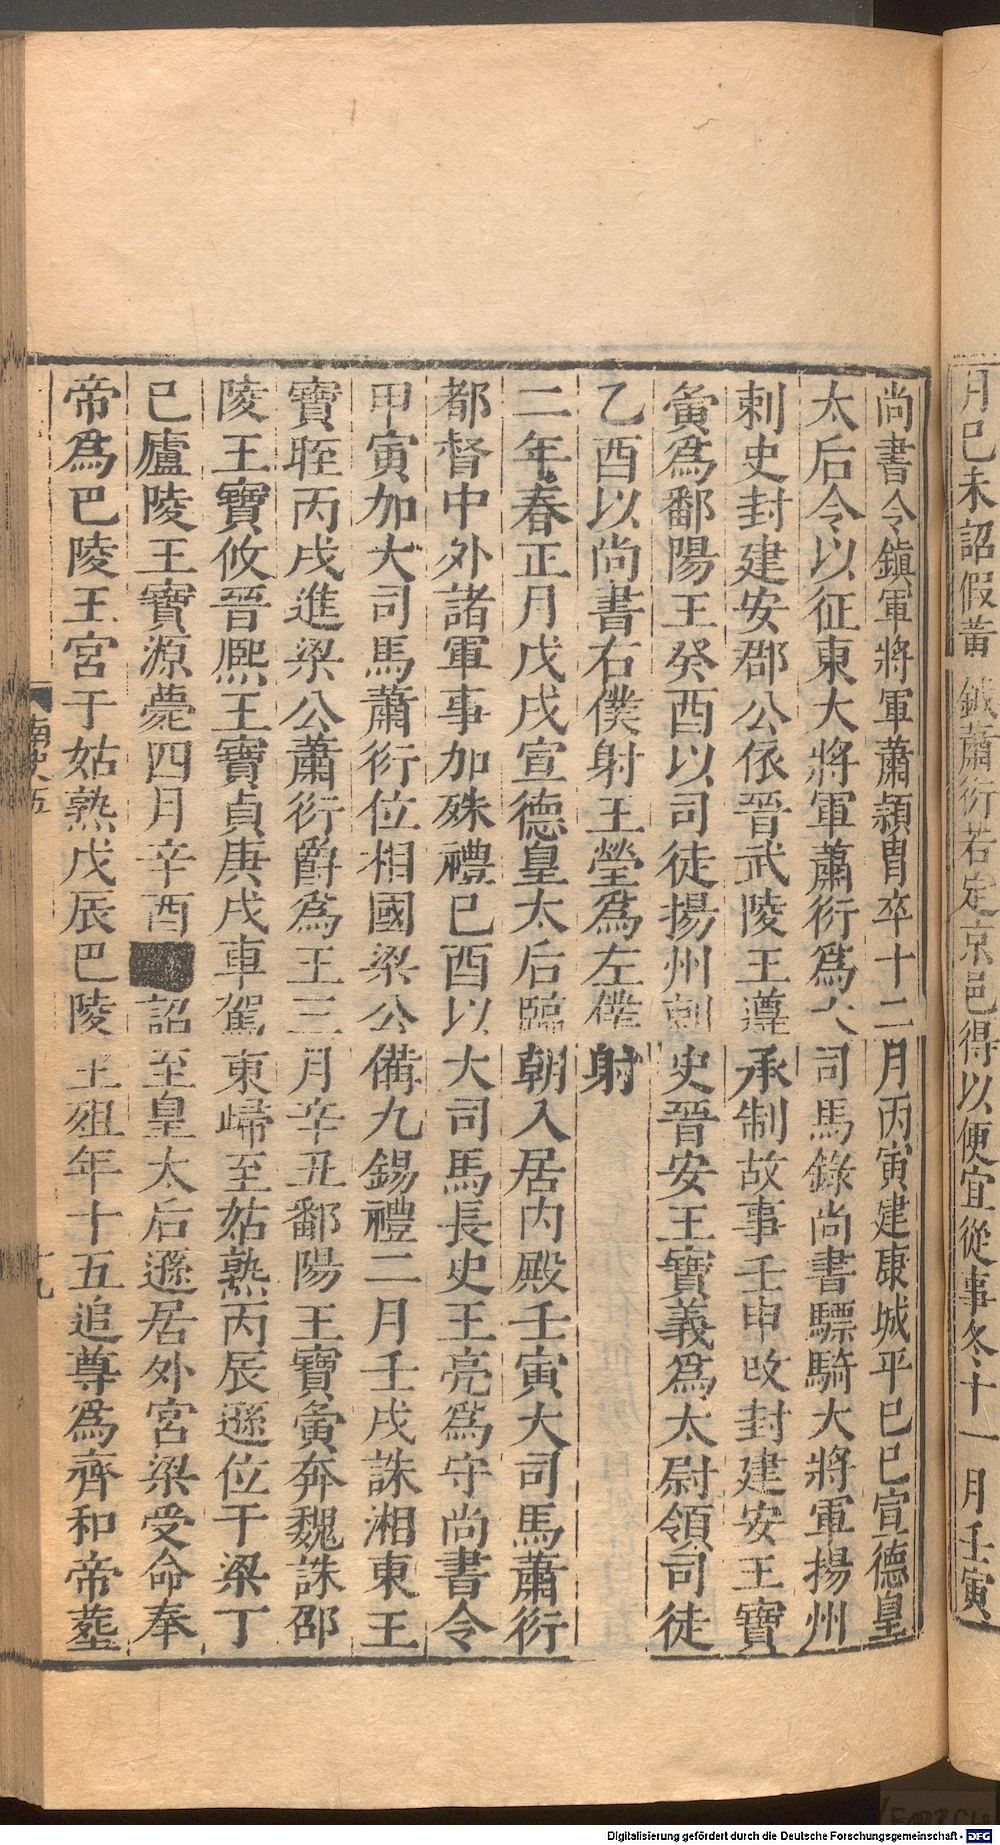 月己未詔假黃鉞蕭衍若定京邑得以便宜從事冬十一月壬寅
尚書令鎭軍將軍蕭頴胄卒十二月丙寅建康城平己巳宣德皇
太后令以征東大將軍蕭衍爲大司馬錄尚書驃騎大將軍揚州
刺史封建安郡公依晉武陵王遵承制故事壬申改封建安王寶
夤爲鄱陽王癸酉以司徒揚州刺史晉安王寶義爲太尉領司徒
乙酉以尚書右僕射王瑩爲左僕射
二年春正月戊戌宣德皇太后臨朝入居內殿壬寅大司馬蕭衍
都督中外諸軍事加殊禮己酉以大司馬長史王亮爲守尚書令
甲寅加大司馬蕭衍位相國梁公備九錫禮二月壬戌誅湘東王
寶晊丙戌進梁公蕭衍爵爲王三月辛丑鄱陽王寶夤奔魏誅邵
陵王寶攸晉熈王寶貞庚戌車駕東歸至姑熟丙辰遜位于梁丁
巳廬陵王寶源薨四月辛酉詔至皇太后遜居外宮梁受命奉
帝爲巴陵王宮于姑熟戊辰巴陵王殂年十五追尊爲齊和帝葬
南史五
十九
Digitalisierung gefördert durch die Deutsche Forschungsgemeinschaft - DFG